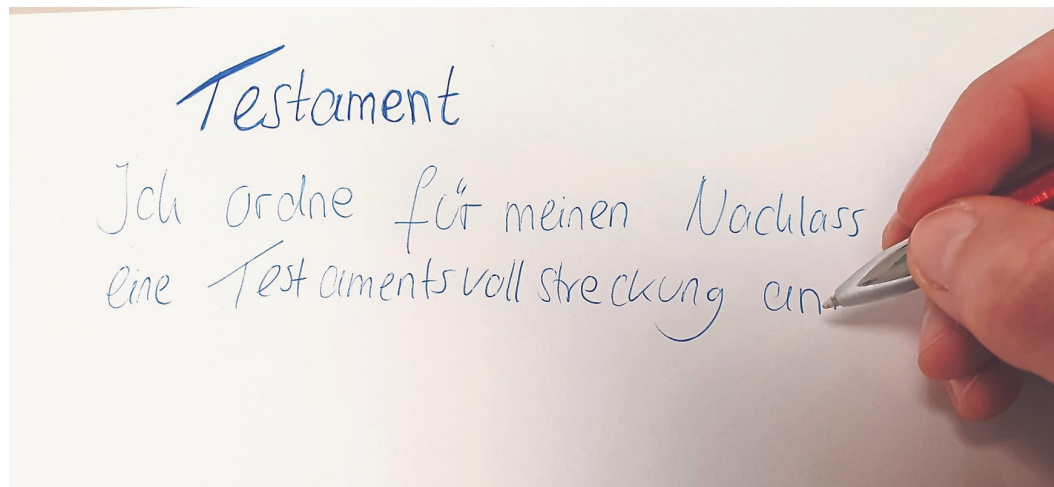 Testament
Ich ordne für meinen Nachlass
eine Testamentsvollstreckung an